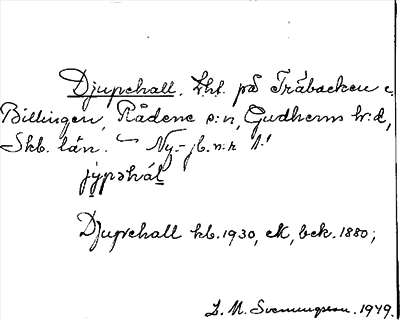 Djupehall. Lht. på Träbacken å
Billingen, Rådene s:n, Gudhems h:d,
Skb. län. Ny- jb. n:r 1!
jy̱pohál̲
Djupehall kb. 1930, ek, bek. 1880;
L. M. Svenungsson. 1949.